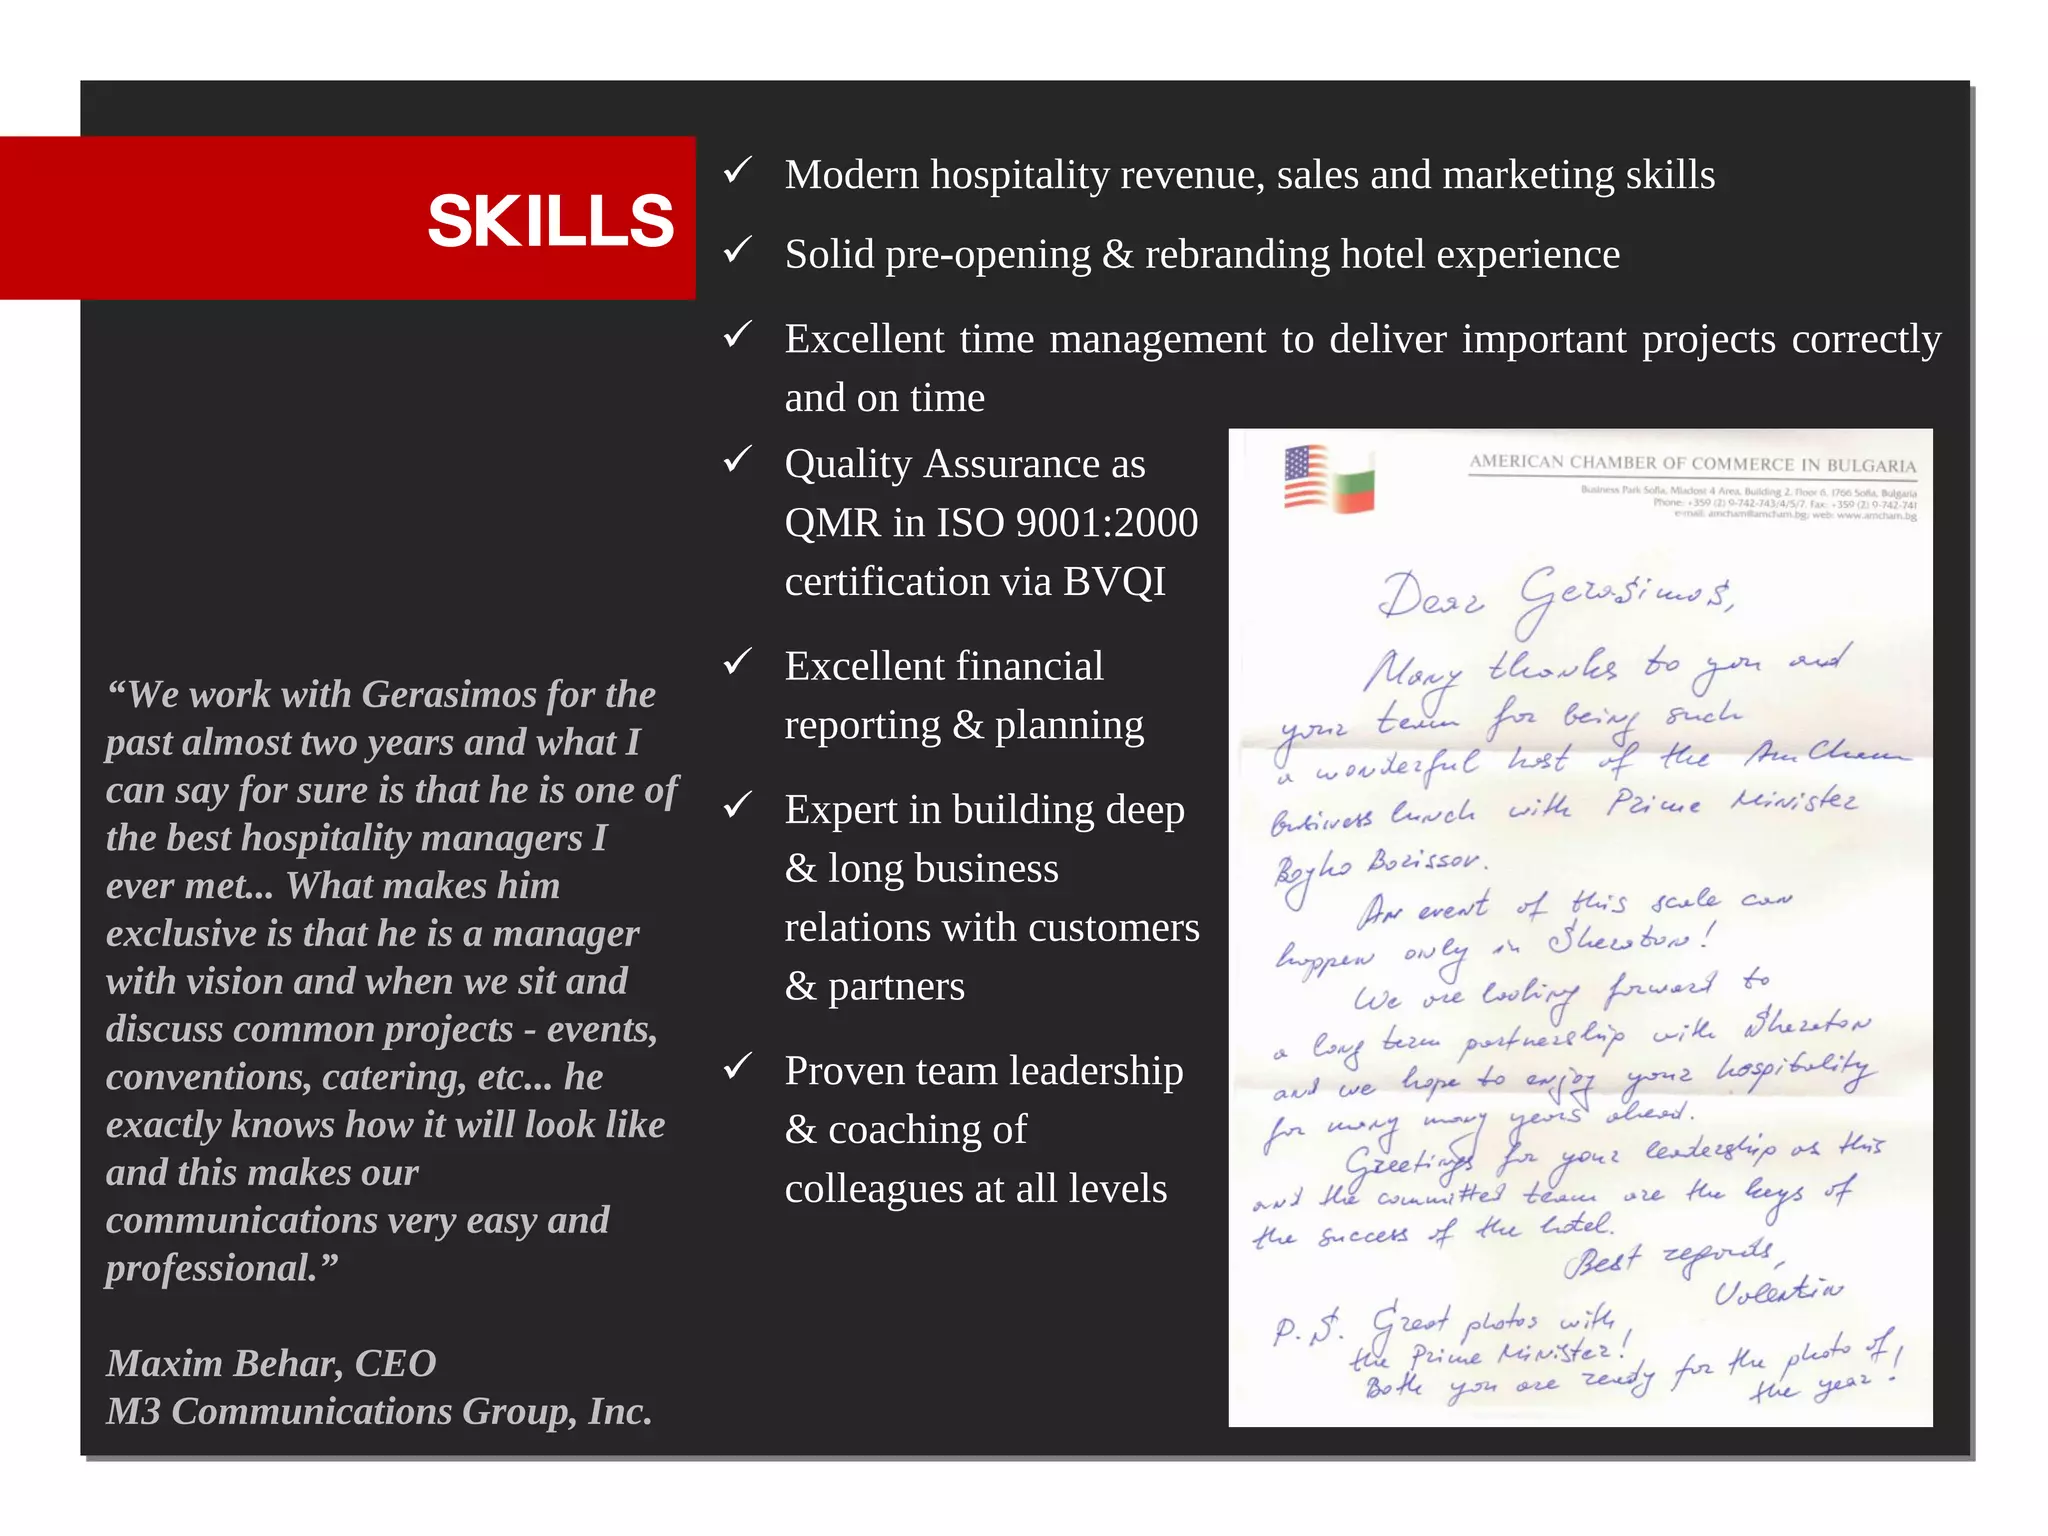 SKILLS
✓ Modern hospitality revenue, sales and marketing skills
✓ Solid pre-opening & rebranding hotel experience
✓ Excellent time management to deliver important projects correctly
and on time
✓ Quality Assurance as
QMR in ISO 9001:2000
certification via BVQI
✓ Excellent financial
reporting & planning
✓ Expert in building deep
& long business
relations with customers
& partners
✓ Proven team leadership
& coaching of
colleagues at all levels
“We work with Gerasimos for the
past almost two years and what I
can say for sure is that he is one of
the best hospitality managers I
ever met... What makes him
exclusive is that he is a manager
with vision and when we sit and
discuss common projects - events,
conventions, catering, etc... he
exactly knows how it will look like
and this makes our
communications very easy and
professional.”
Maxim Behar, CEO
M3 Communications Group, Inc.
AMERICAN CHAMBER OF COMMERCE IN BULGARIA
Business Park Sofia, Mladost 4 Area, Building 2, Floor 6, 1766 Sofia, Bulgaria
Phone: +359 (2) 9-742-743/4/5/7, Fax: +359 (2) 9-742-741
e-mail: amcham@amcham.bg; web: www.amcham.bg
Dear Gerasimos,
Many thanks to you and
your team for being such
a wonderful host of the AmCham
business lunch with Prime Minister
Boyko Borissov.
An event of this scale can
happen only in Sheraton!
We are looking forward to
a long term partnership with Sheraton
and we hope to enjoy your hospitality
for many many years ahead.
Greetings for your leadership as this
and the committed team are the keys of
the success of the hotel.
Best regards,
Valentin
P.S. Great photos with
the Prime Minister!
Both you are ready for the photo of
the year!